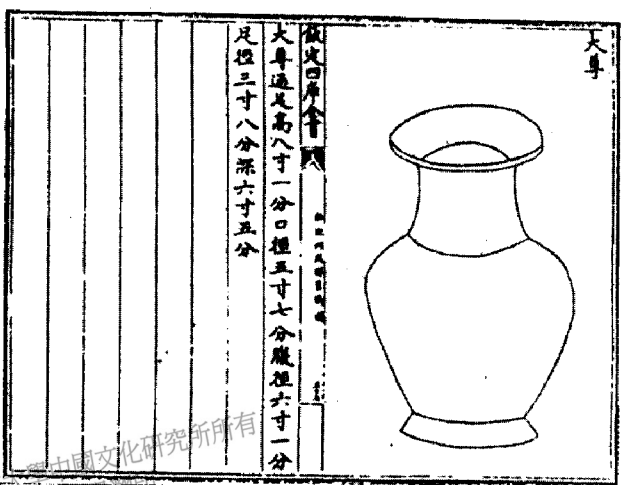 大尊
欽定四庫全書
大尊通足高八寸一分口徑五寸七分腹徑六寸一分
足徑三寸八分深六寸五分
學中國文化研究所所有